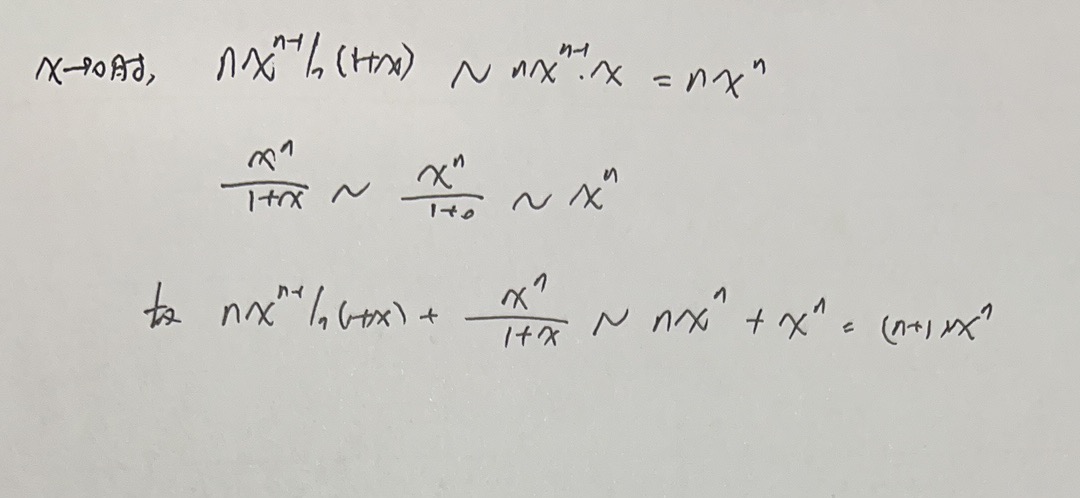 x→0时, nx^{n-1} ln(1+x) ~ nx^{n-1}·x = nx^n
x^n/(1+x) ~ x^n/(1+0) ~ x^n
nx^{n-1} ln(1+x) + x^n/(1+x) ~ nx^n + x^n = (n+1)x^n